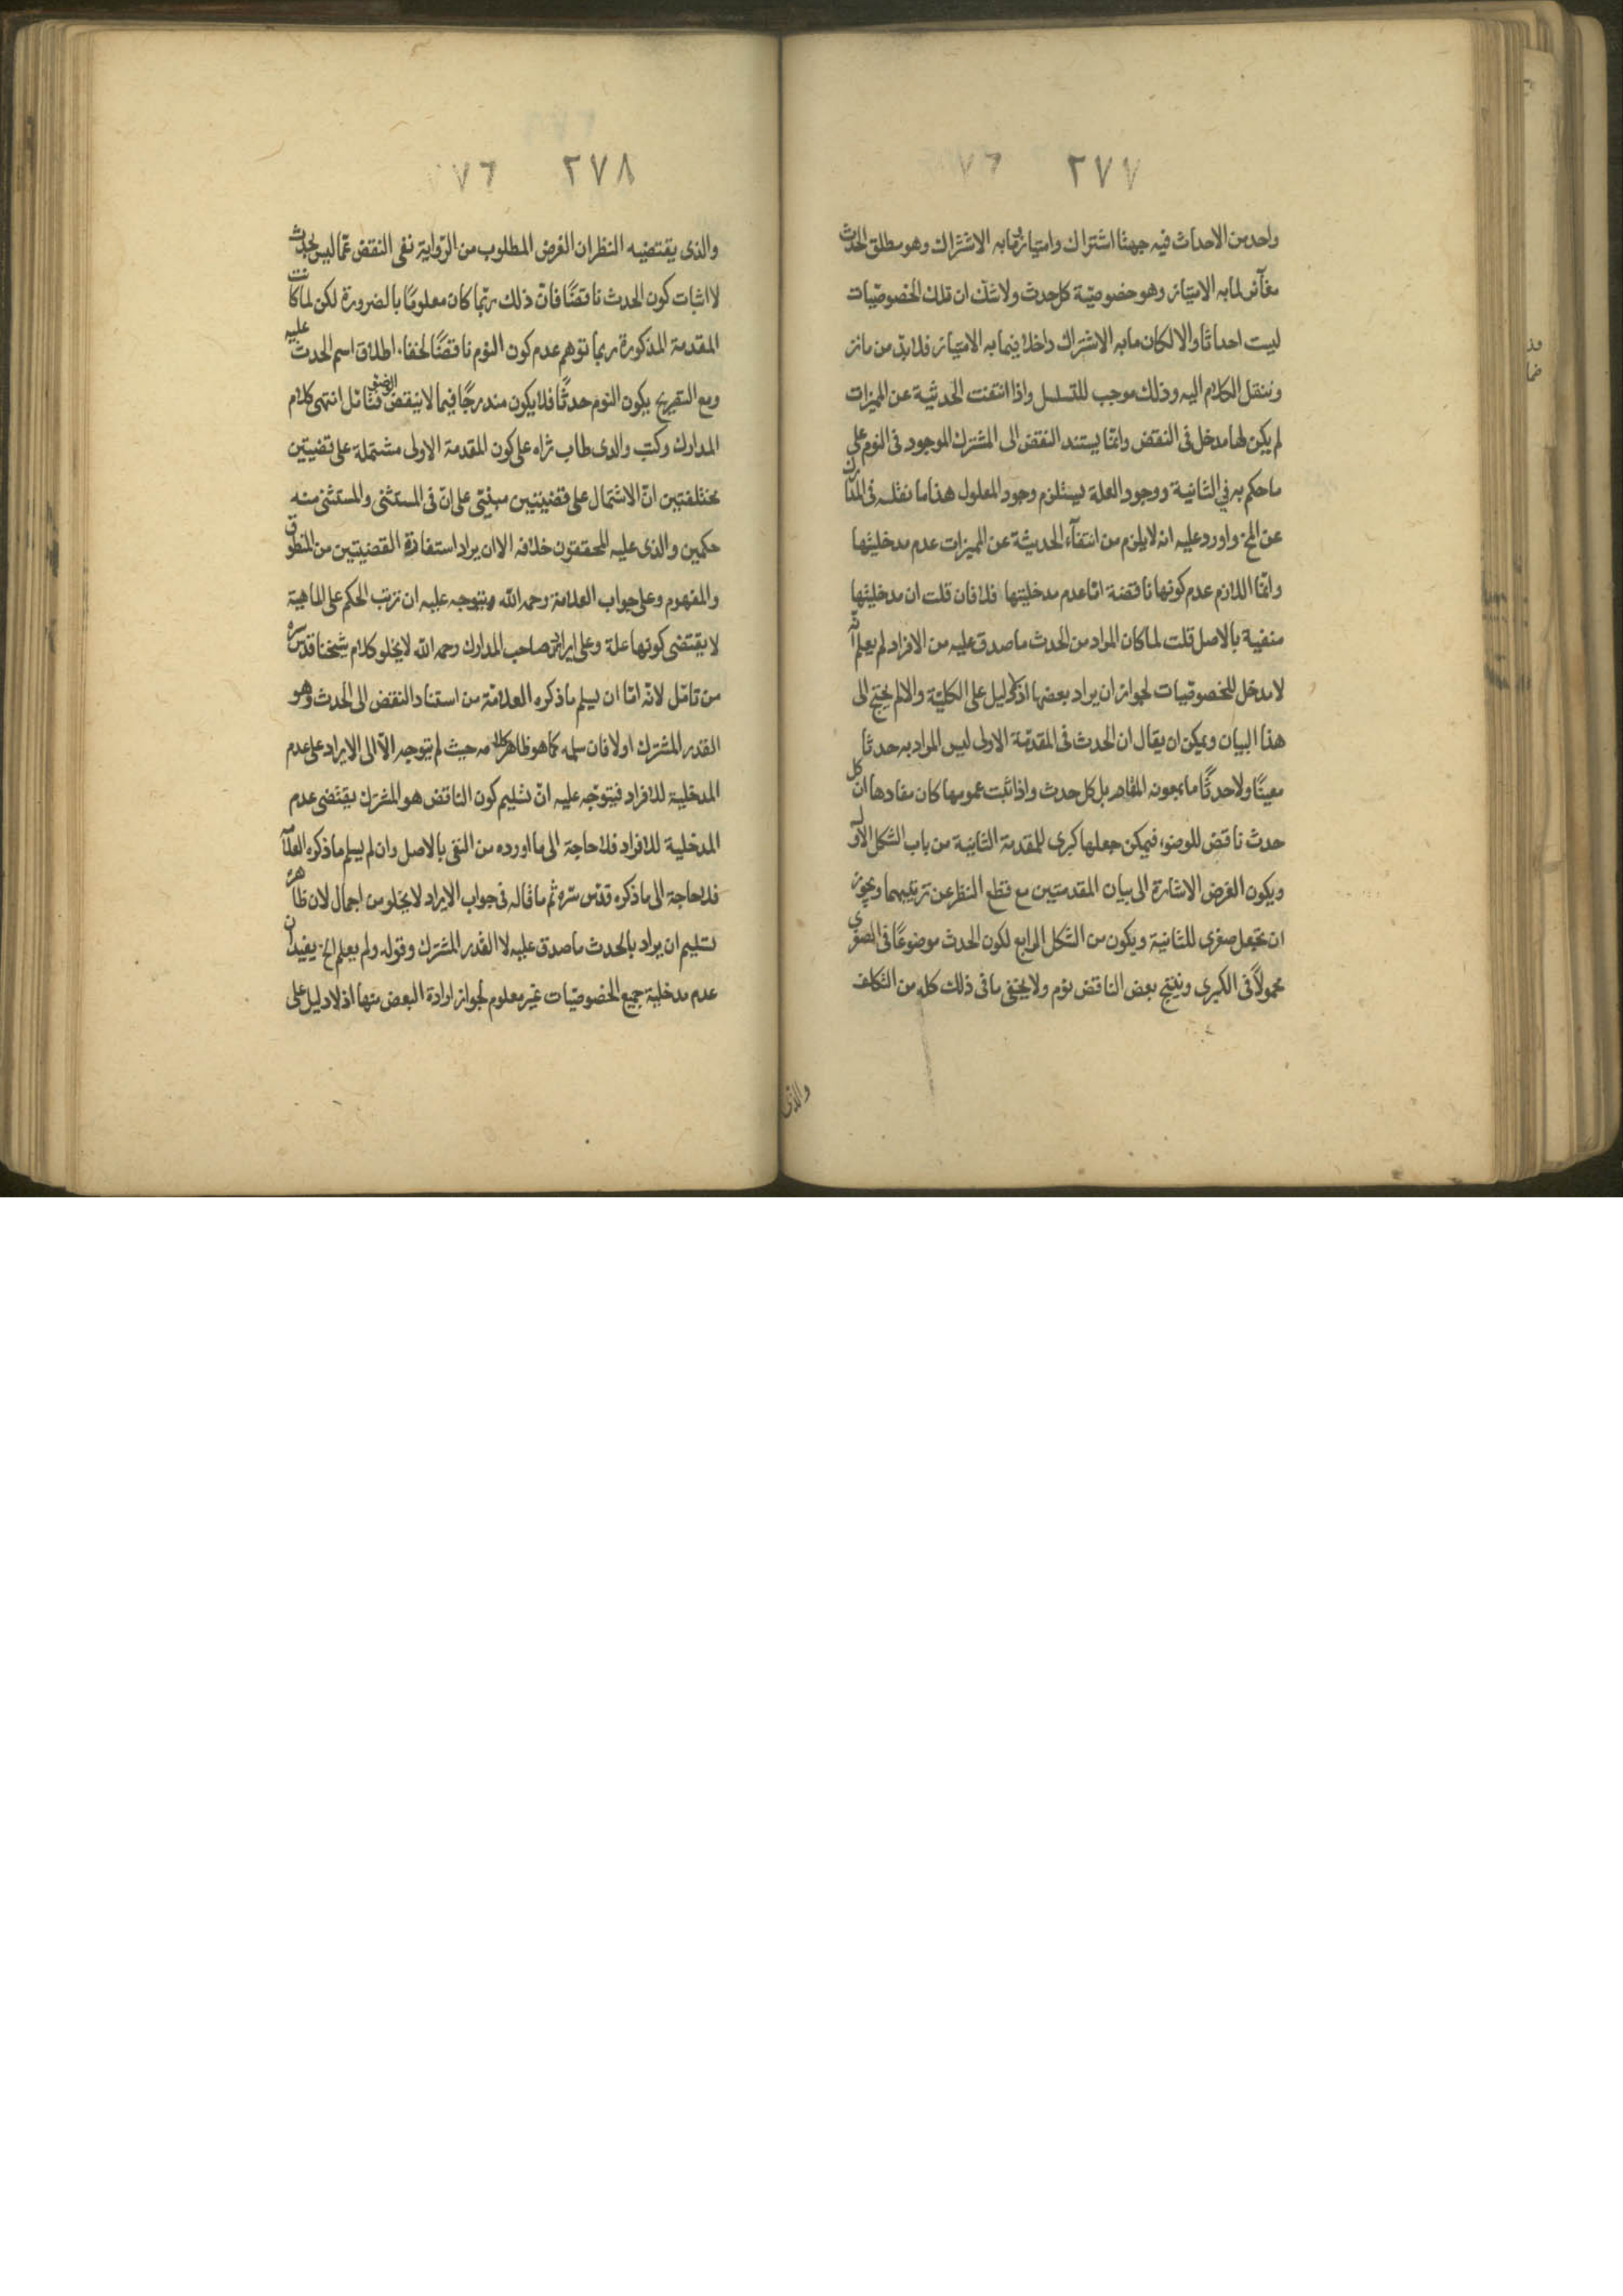 ٢٧٧ ٧٦
واحد من الاحداث فيه جهتا اشتراك وامتياز فما به الاشتراك وهو مطلق الحدث
مغاير لما به الامتياز وهو خصوصية كل حدث ولا شك ان تلك الخصوصيات
ليست احداثا والا لكان ما به الاشتراك داخلا فيما به الامتياز فلا بد من مائز
وننقل الكلام اليه وذلك موجب للتسلسل واذا انتفت الحدثية عن المميزات
لم يكن لها مدخل في النقض وانما يستند النقض الى المشترك الموجود في النوم على
ما حكم به في الثانية ووجود العلة يستلزم وجود المعلول هذا ما نقله في المدارك
عن المخ واورد عليه انه لا يلزم من انتفاء الحديثة عن المميزات عدم مدخليتها
وانما اللازم عدم كونها ناقضة اما عدم مدخليتها فلا فان قلت ان مدخليتها
منفية بالاصل قلت لما كان المراد من الحدث ما صدق عليه من الافراد لم يعلم انه
لا مدخل للخصوصيات لجواز ان يراد بعضها اذ لا دليل على الكلية والا لم يحتج الى
هذا البيان ويمكن ان يقال ان الحدث في المقدمة الاولى ليس المراد به حدثا
معينا ولا حدثا ما بل كل حدث واذا ثبت عمومها كان مفادها ان كل
حدث ناقض للوضوء فيمكن جعلها كبرى للمقدمة الثانية من باب الشكل الاول
ويكون الغرض الاشارة الى بيان المقدمتين مع قطع النظر عن ترتيبهما ويجوز
ان تجعل صغرى للثانية ويكون من الشكل الرابع لكون الحدث موضوعًا في الصغرى
محمولاً في الكبرى وينتج بعض الناقض نوم ولا يخفى ما في ذلك كله من التكلف
والذى
٢٧٨ ٧٦
والذى يقتضيه النظر ان الغرض المطلوب من الرواية نفى النقض عما ليس بحدث
لا اثبات كون الحدث ناقضًا فان ذلك ربما كان معلومًا بالضرورة لكن لما كانت
المقدمة المذكورة ربما توهم عدم كون النوم ناقضًا لخفاء اطلاق اسم الحدث عليه
ومع التصريح يكون النوم حدثًا فلا يكون مندرجًا فيما لا ينقض الوضوء فتامل انتهى كلام
المدارك وكتب والدى طاب ثراه على كون المقدمة الاولى مشتملة على قضيتين
مختلفتين ان الاشتمال على قضيتين مبنى على ان في المستثنى والمستثنى منه
حكمين والذى عليه المحققون خلافه الا ان يراد استفادة القضيتين من المنطوق
والمفهوم وعلى جواب العلامة رحمه الله ويتوجه عليه ان ترتب الحكم على الماهية
لا يقتضى كونها علة وعلى ايراد صاحب المدارك رحمه الله لا يخلو كلام شيخنا قدس سره
من تامل لانه اما ان يسلم ما ذكره العلامة من استناد النقض الى الحدث وهو
القدر المشترك اولا فان سلمه كما هو ظاهر كلامه حيث لم يتوجه الا الى الايراد على عدم
المدخلية للافراد فيتوجه عليه ان تسليم كون الناقض هو المشترك يقتضى عدم
المدخلية للافراد فلا حاجة الى ما اورده من النفى بالاصل وان لم يسلم ما ذكره العلامة
فلا حاجة الى ما ذكره قدس سره ثم ما قاله في جواب الايراد لا يخلو من اجمال لان ظاهره
تسليم ان يراد بالحدث ما صدق عليه لا القدر المشترك وقوله ولم يعلم الخ يفيد ان
عدم مدخلية جميع الخصوصيات غير معلوم لجواز ارادة البعض منها اذ لا دليل على